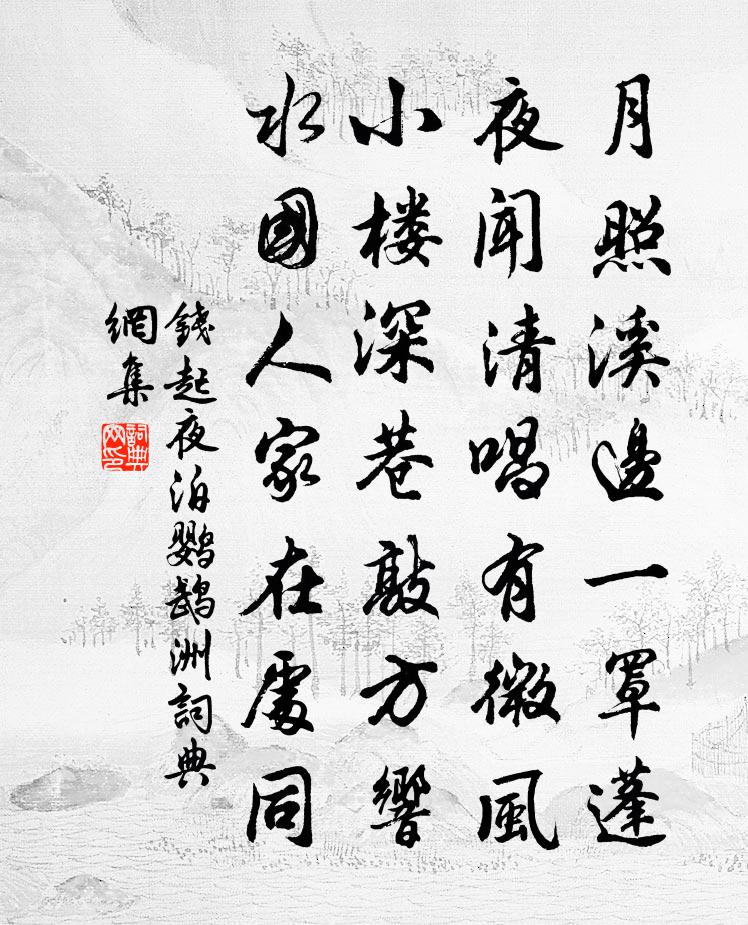 月照溪邊一罩蓬
夜聞清唱有微風
小楼深巷敲方響
水國人家在處同
錢起夜泊鹦鹉洲詞典
網集
詞典
网印